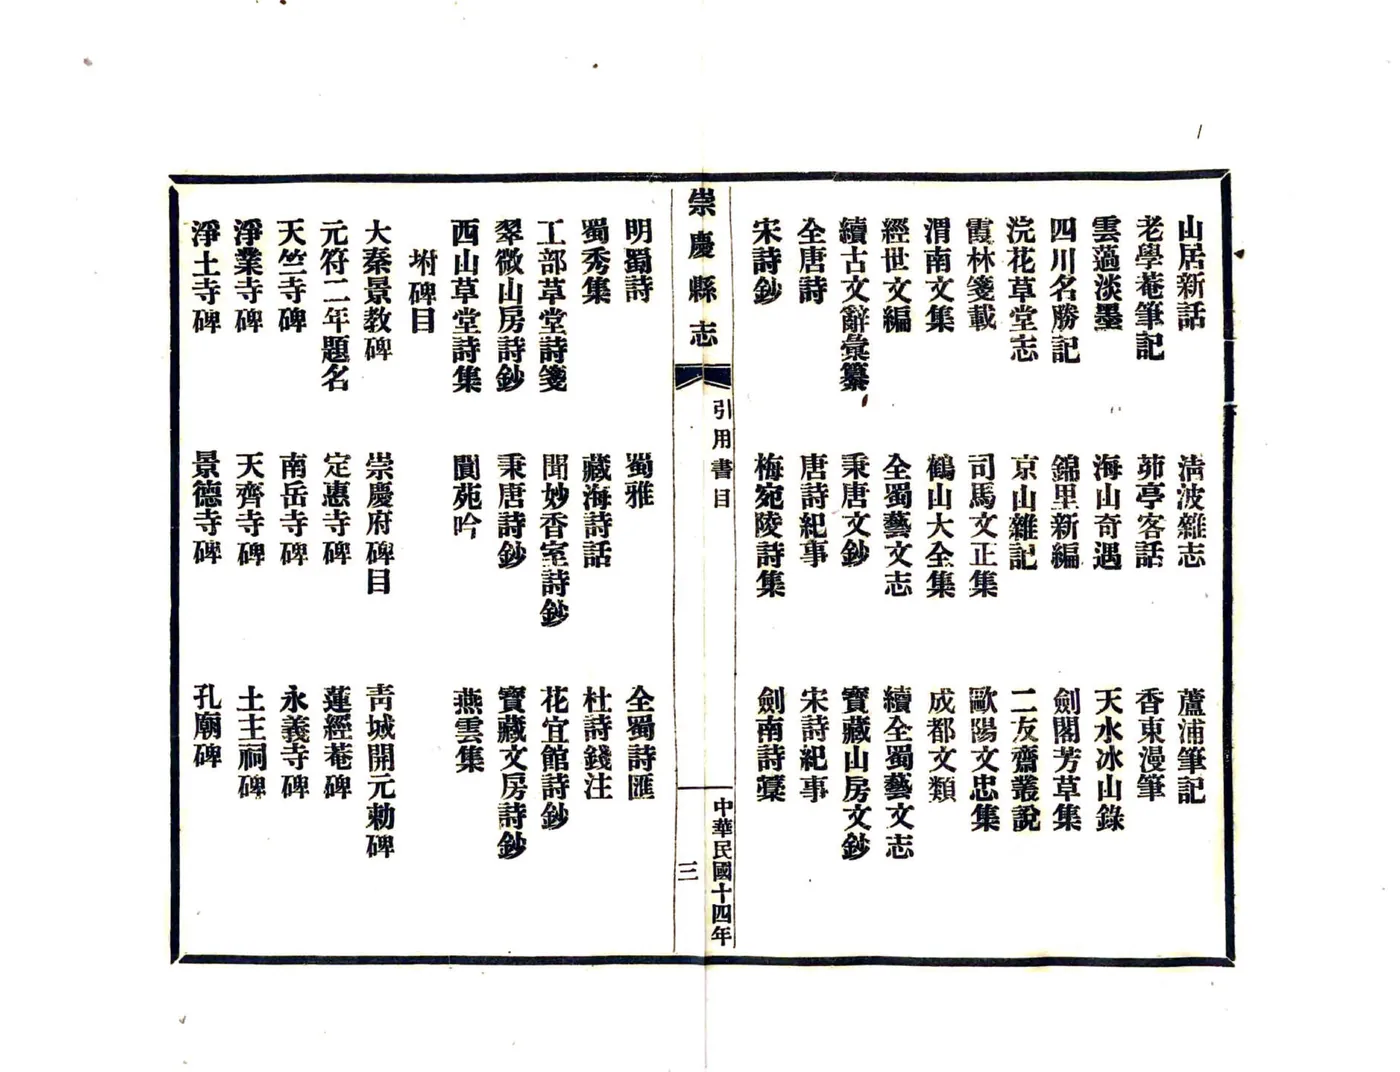 山居新話　清波雜志　蘆浦筆記
老學菴筆記　茆亭客話　香東漫筆
雲薖淡墨　海山奇遇　天水冰山錄
四川名勝記　錦里新編　劍閣芳草集
浣花草堂志　京山雜記　二友齋叢說
霞林箋載　司馬文正集　歐陽文忠集
渭南文集　鶴山大全集　成都文類
經世文編　全蜀藝文志　續全蜀藝文志
續古文辭彙纂　秉唐文鈔　寶藏山房文鈔
全唐詩　唐詩紀事　宋詩紀事
宋詩鈔　梅宛陵詩集　劍南詩藁
崇慶縣志
引用書目
三
中華民國十四年
明蜀詩　蜀雅　全蜀詩匯
蜀秀集　藏海詩話　杜詩錢注
工部草堂詩箋　聞妙香室詩鈔　花宜館詩鈔
翠微山房詩鈔　秉唐詩鈔　寶藏文房詩鈔
西山草堂詩集　閬苑吟　燕雲集
坿碑目
大秦景教碑　崇慶府碑目　青城開元勅碑
元符二年題名　定惠寺碑　蓮經菴碑
天竺寺碑　南岳寺碑　永義寺碑
淨業寺碑　天齊寺碑　土主祠碑
淨土寺碑　景德寺碑　孔廟碑